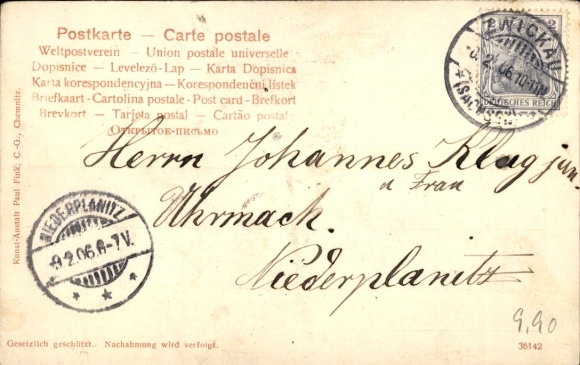 Postkarte — Carte postale
Weltpostverein — Union postale universelle
Dopisnice — Levelező-Lap — Karta Dopisnica
Karta korespondencyjna — Korespondenční lístek
Briefkaart - Cartolina postale - Post card - Brefkort
Brevkort — Tarjeta postal — Cartão postal
Открытое-письмо
ZWICKAU
(SACHSEN)
2
DEUTSCHES REICH
Herrn Johannes Klug jun
u Frau
Uhrmach.
Niederplanitz
NIEDERPLANITZ
9.2.06.6-7V.
Kunst-Anstalt Paul Fink, C.-G., Chemnitz.
9,90
Gesetzlich geschützt. Nachahmung wird verfolgt.
36142